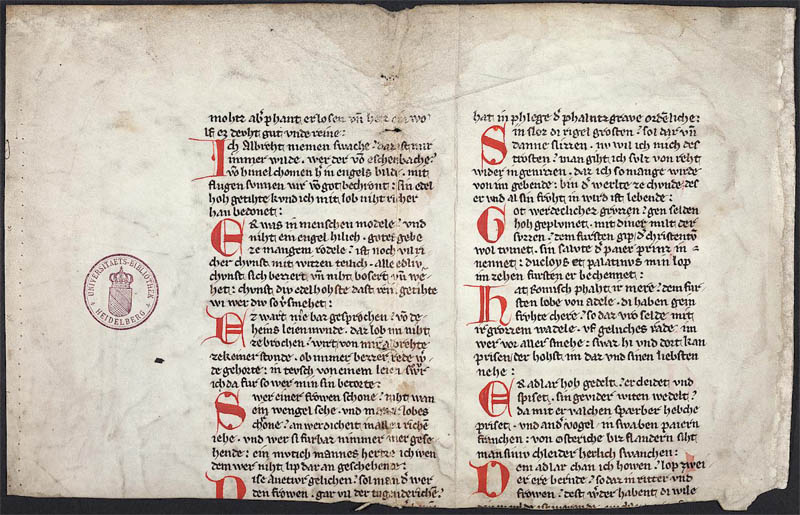 mohte ab phant erlosen vn̄ herz
ist ez devht gut vnde reine:
Ich Albreht niemen swache: daz ist mir
immer wilde. wer der vō eschenbache:
vō himel chomen in engels bilde. mit
flugen svnnen vir vō got bechront: sin edel
hoh getihte kvnd ich mit lob niht richer
han bedonet:
Er was in menschen modele: vnd
niht ein engel hilich. gotes gebe
ze mangem rodele: ist noch vil ri
cher chvnst mit witzen teilich. alle edliv
chvnst sich bezzert vn̄ niht bosert
het: chvnst div edel hohste dast rein getihte
wi wer div so
Ez wart nie baz gesprochen: vō de
heins leien mvnde. daz lob im niht
zebrochen. wirt von mir
zekeiner stvnde. ob immer bezzer rede
de gehorte: in tevsch von einem leien
ich da fur so wer min sin betorte:
Swer einer frowen schone: niht wan
ein wengel sehe. vnd lobes
chrone: an werdicheit
iehe. vnd wer si furbaz nimmer mer gese
hende: ein mvtich mannes hertze ich wen
dem wer niht lip dar an geschehende:
Dise aventver gelichen: sol man wer
den frowen: gar vil der tugenderiche:
hat in phlege d phalntzgrave ordenliche:
Sin sloz di rigel grosten: sol dar vn̄
danne slizzen. nv wil ich mich des
trosten: man giht ich svlt von reht
wider in genizzen. daz ich so manige wirde
von im gebende: bin d werlte ze chvnde des
er vnd al sin froht in wird ist lebende:
Got werdeclicher grvzzen: gen selden
hoh geplvmet. mit diner milt der
svzzen: dem fursten gip d christentvm
wol rvmet. sin lvt d paier prinze in
nennet: dvcloys et palatinvs min lop
im zehen fursten er bechennet:
Hat somisch phaht iz mere: dem fur
sten lobe von adele. di haben gein
froht chere: so daz vro selde mit
ir grozzem wadele: vf gelvches rade im
wer vor aller smehe: swar hi vnd dort kan
prisen der hohst im daz vnd sinen liebsten
nehe:
Er adlar hoh gedelt: er cleidet vnd
spiset. sin gevider witen wedelt:
da mit er valchen sparber hebche
priset. vnd and vogel. in swaben paiern
franchen: von osteriche biz flandern siht
man siniv chleider herlich swanchen:
Dem adlar chan ich howen: lop zwei
er ere bernde: so daz in ritter vnd
frowen: dest werder habent di wile
UNIVERSITAETS-BIBLIOTHEK HEIDELBERG